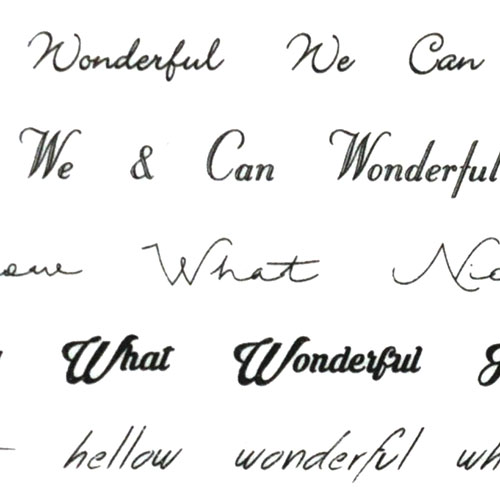 Wonderful We Can
We & Can Wonderful
What
What Wonderful
hellow wonderful